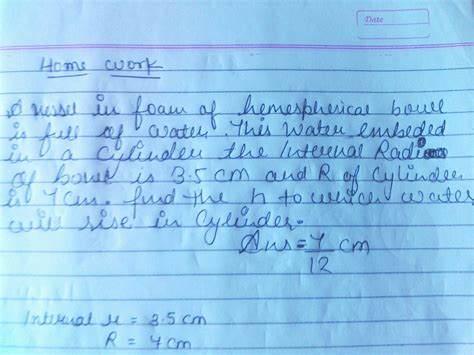 Date
Home work
A vessel in foam of hemespherical boul
is full of water. This water embeded
in a cylinder the Internal Radi
of boul is 3.5 cm and R of Cylinder
is 7cm. find the h to which water
will rise in Cylinder.
Ans = 7/12 cm
Internal r = 3.5 cm
R = 7 cm